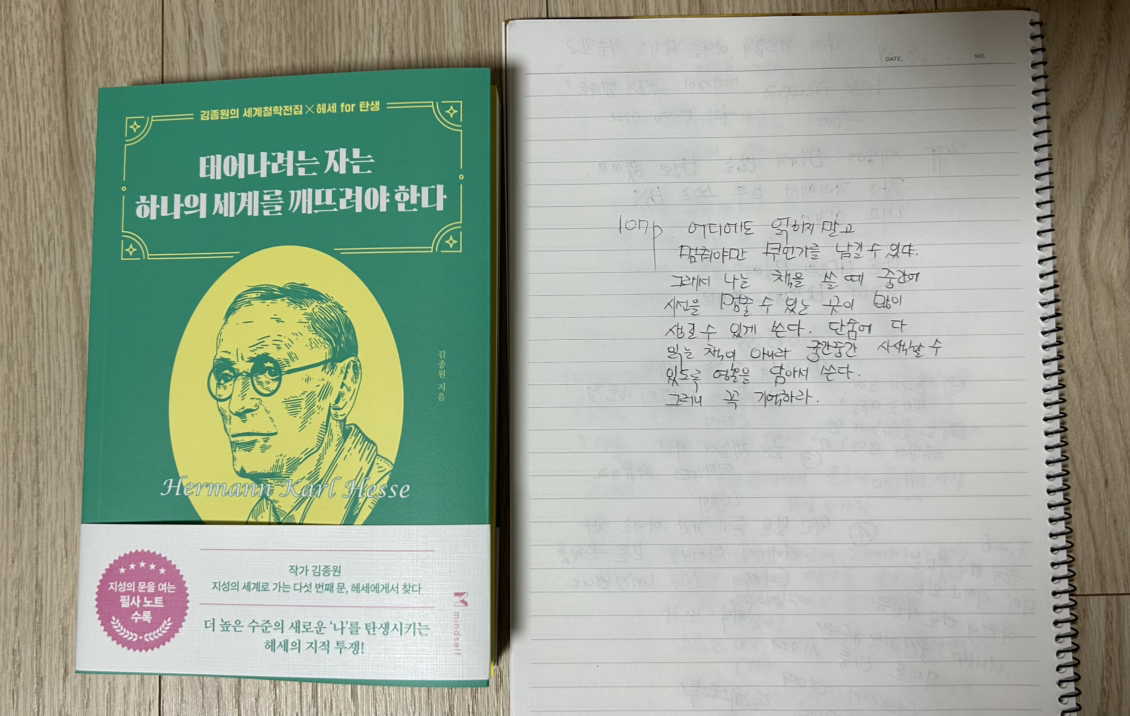 김종원의 세계철학전집×헤세 for 탄생
태어나려는 자는
하나의 세계를 깨뜨려야 한다
김종원 지음
Hermann Karl Hesse
지성의 문을 여는
필사 노트
수록
작가 김종원
지성의 세계로 가는 다섯 번째 문, 헤세에게서 찾다
더 높은 수준의 새로운 '나'를 탄생시키는
헤세의 지적 투쟁!
mindself
DATE. NO.
107p 어디에도 얽히지 말고
멈춰야만 무언가를 남길 수 있다.
그래서 나는 책을 쓸 때 중간에
시선을 멈출 수 있는 곳이 많이
생길 수 있게 쓴다. 단숨에 다
읽는 책이 아니라 중간중간 사색할 수
있도록 영혼을 담아서 쓴다.
그러니 꼭 기억하라.